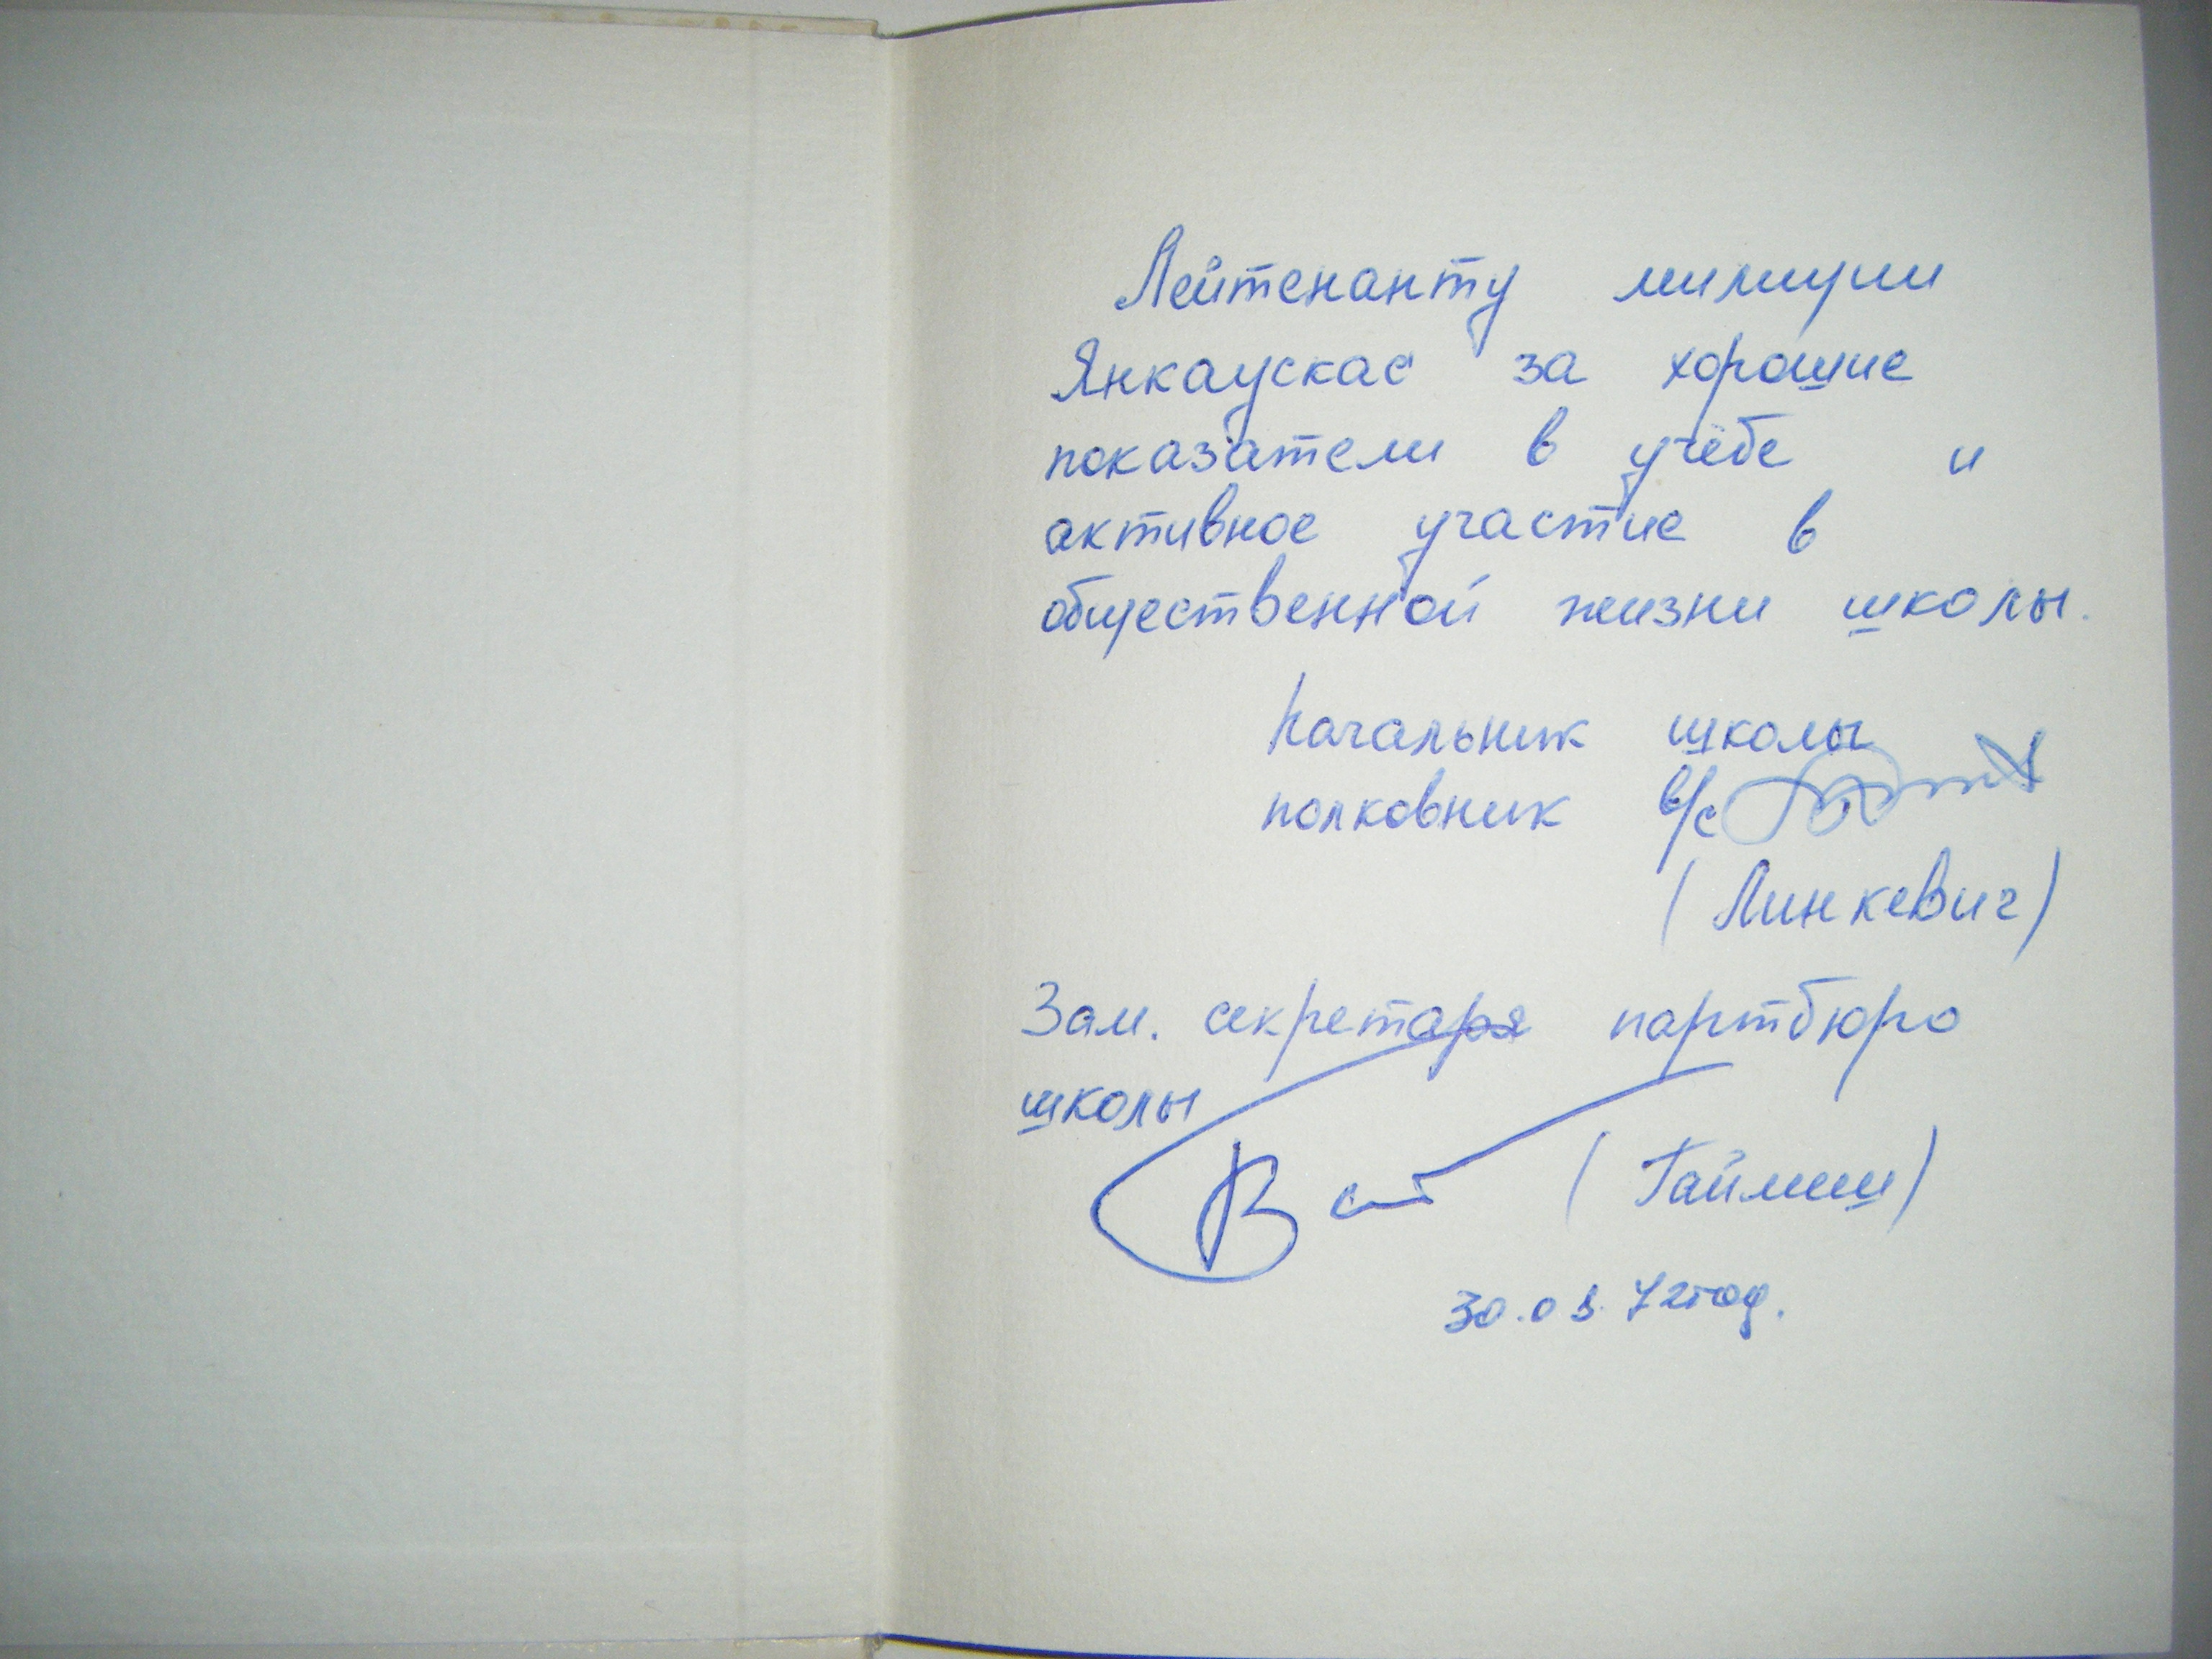 Лейтенанту милиции
Янкаускас за хорошие
показатели в учёбе и
активное участие в
общественной жизни школы.
Начальник школы
полковник в/с
(Линкевич)
Зам. секретаря партбюро
школы
(Гаймиш)
72год.